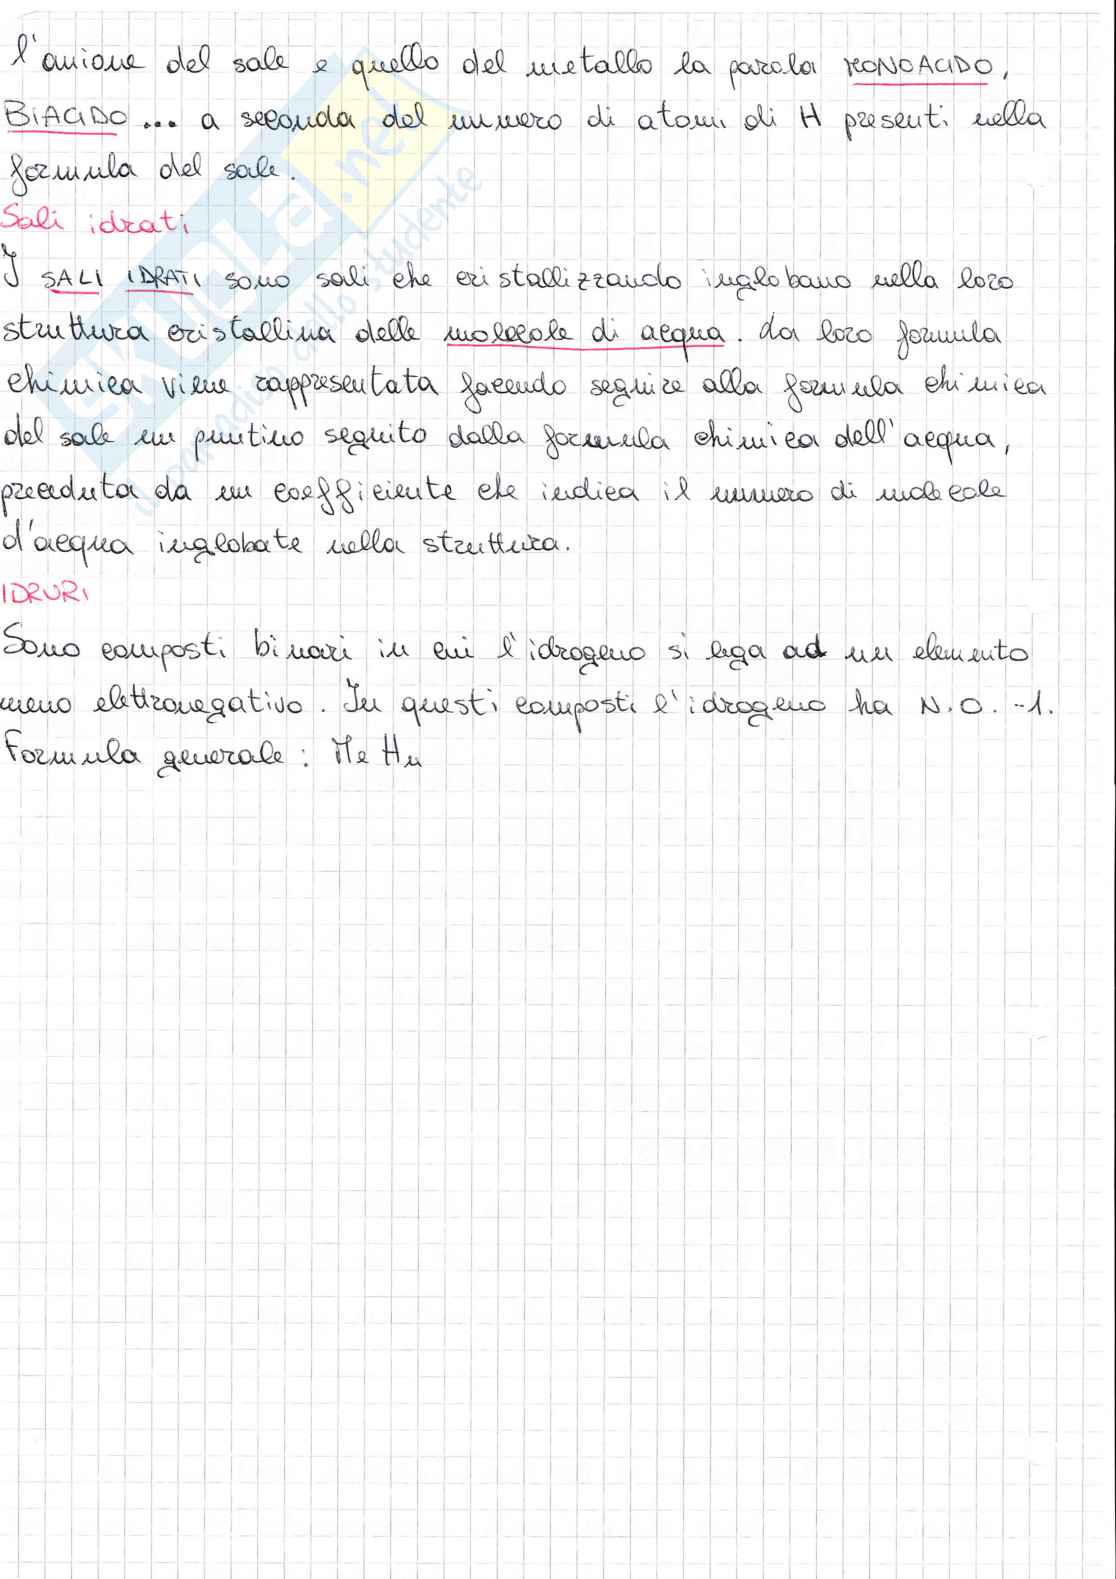 l'anione del sale e quello del metallo la parola MONOACIDO,
BIACIDO... a seconda del numero di atomi di H presenti nella
formula del sale.
Sali idrati
I SALI IDRATI sono sali che cristallizzando inglobano nella loro
struttura cristallina delle molecole di acqua. La loro formula
chimica viene rappresentata facendo seguire alla formula chimica
del sale un puntino seguito dalla formula chimica dell'acqua,
preceduta da un coefficiente che indica il numero di molecole
d'acqua inglobate nella struttura.
IDRURI
Sono composti binari in cui l'idrogeno si lega ad un elemento
meno elettronegativo. In questi composti l'idrogeno ha N.O. -1.
Formula generale: MeHn
SKUOLA.net